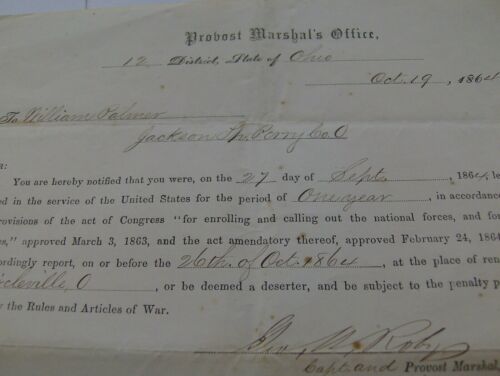 Provost Marshal's Office,
12 District, State of Ohio
Oct. 19, 1864
To William Palmer
Jackson Th. Perry Co. O
:
You are hereby notified that you were, on the 27 day of Sept, 1864, le
ed in the service of the United States for the period of One year, in accordanc
rovisions of the act of Congress "for enrolling and calling out the national forces, and fo
es," approved March 3, 1863, and the act amendatory thereof, approved February 24, 1864
ordingly report, on or before the 26th of Oct. 1864, at the place of ren
rcleville, O, or be deemed a deserter, and be subject to the penalty p
y the Rules and Articles of War.
Geo. W. Roby
Capt and Provost Marshal